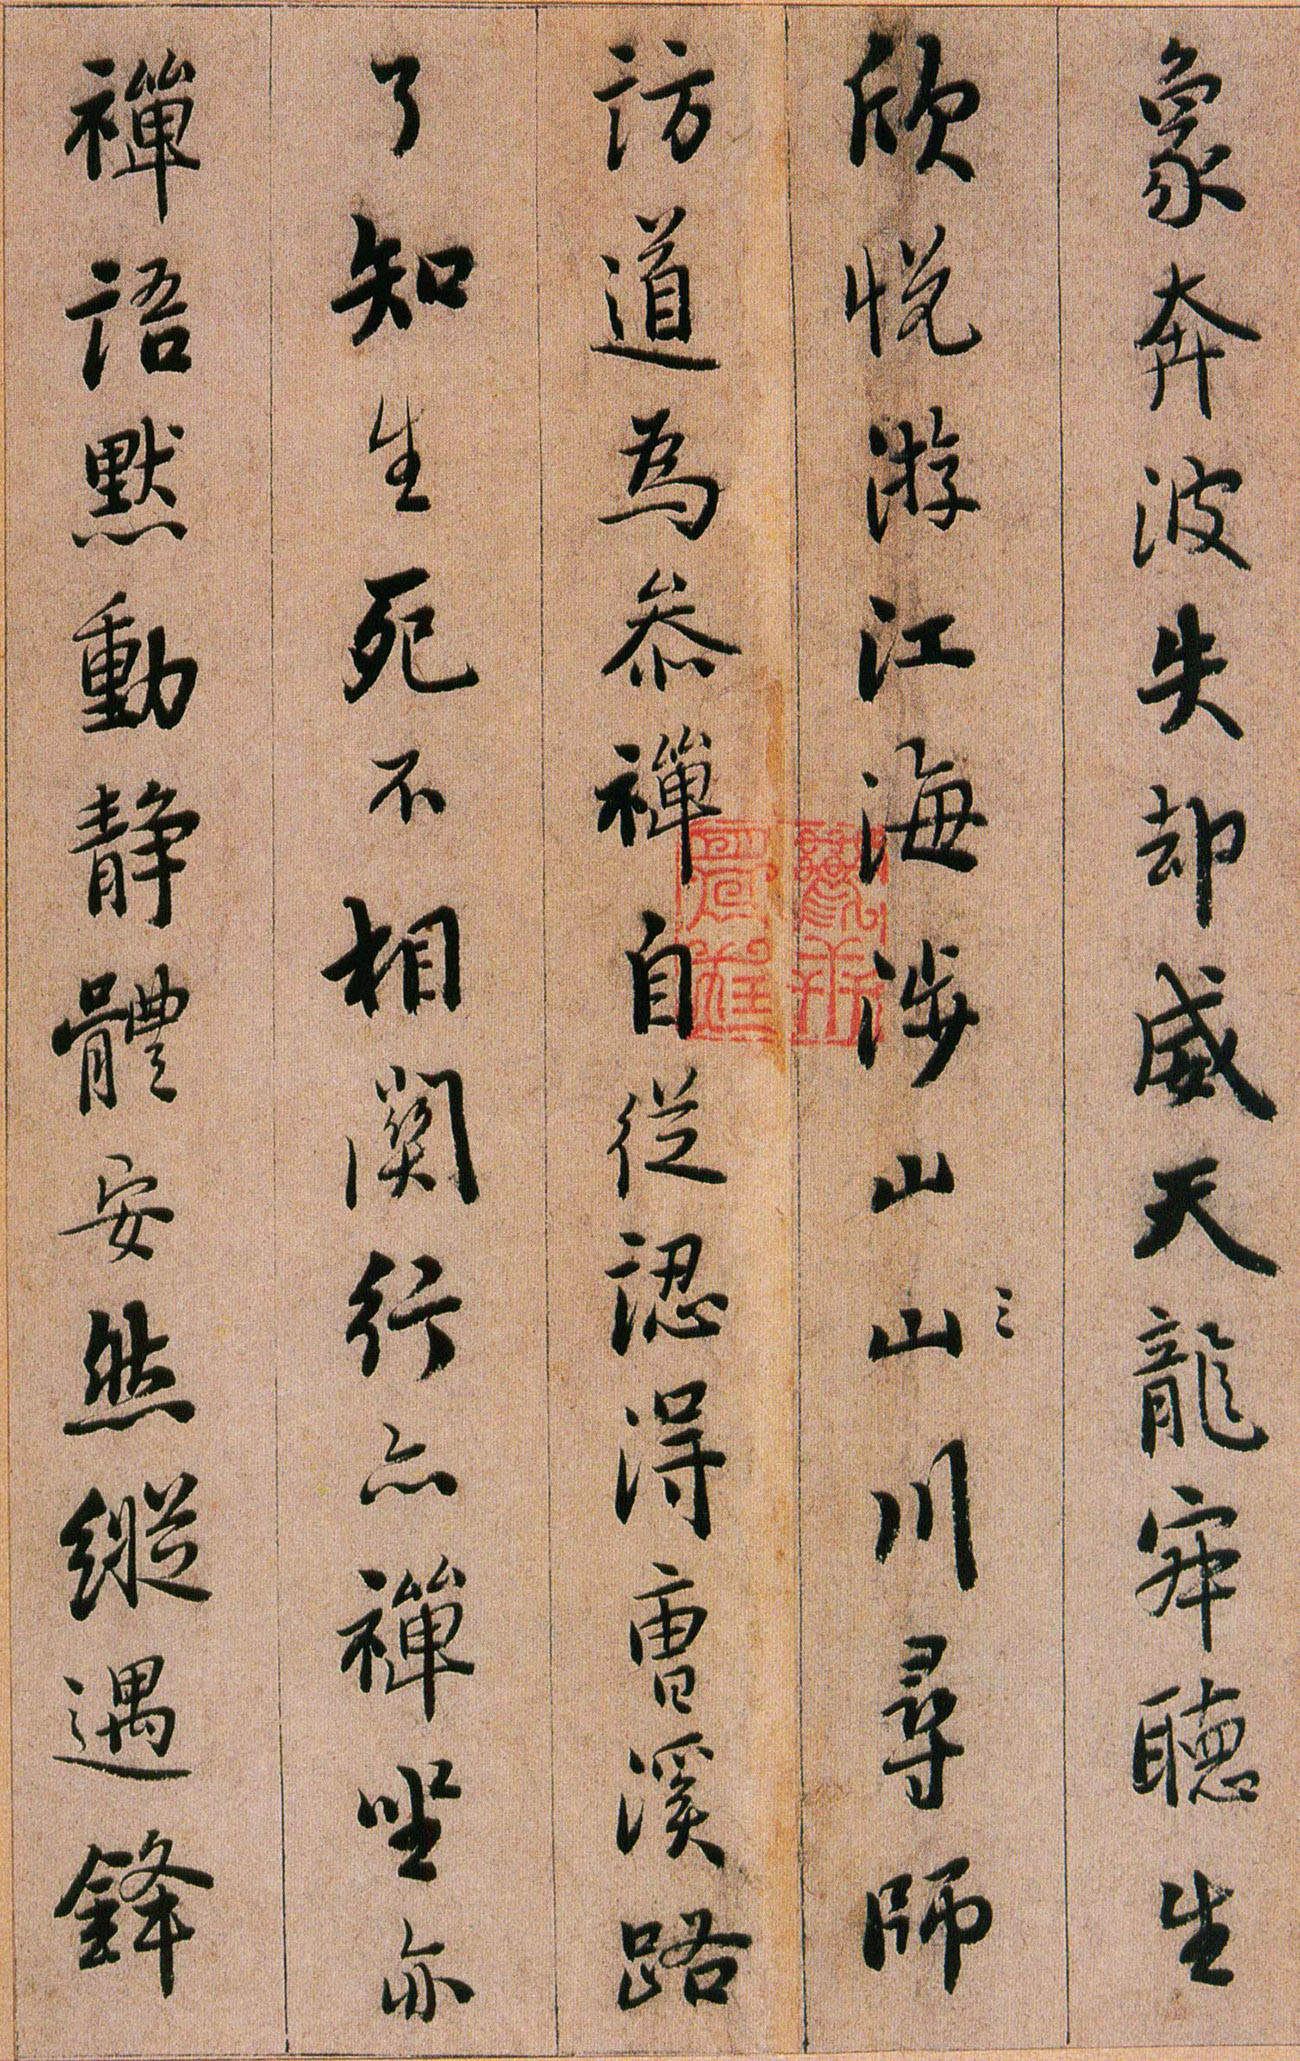 象奔波失却威天龍寂聽生
欣悅游江海涉山山川尋師
訪道為參禪自從認得曹溪路
了知生死不相關行亦禪坐亦
禪語默動靜體安然縱遇鋒